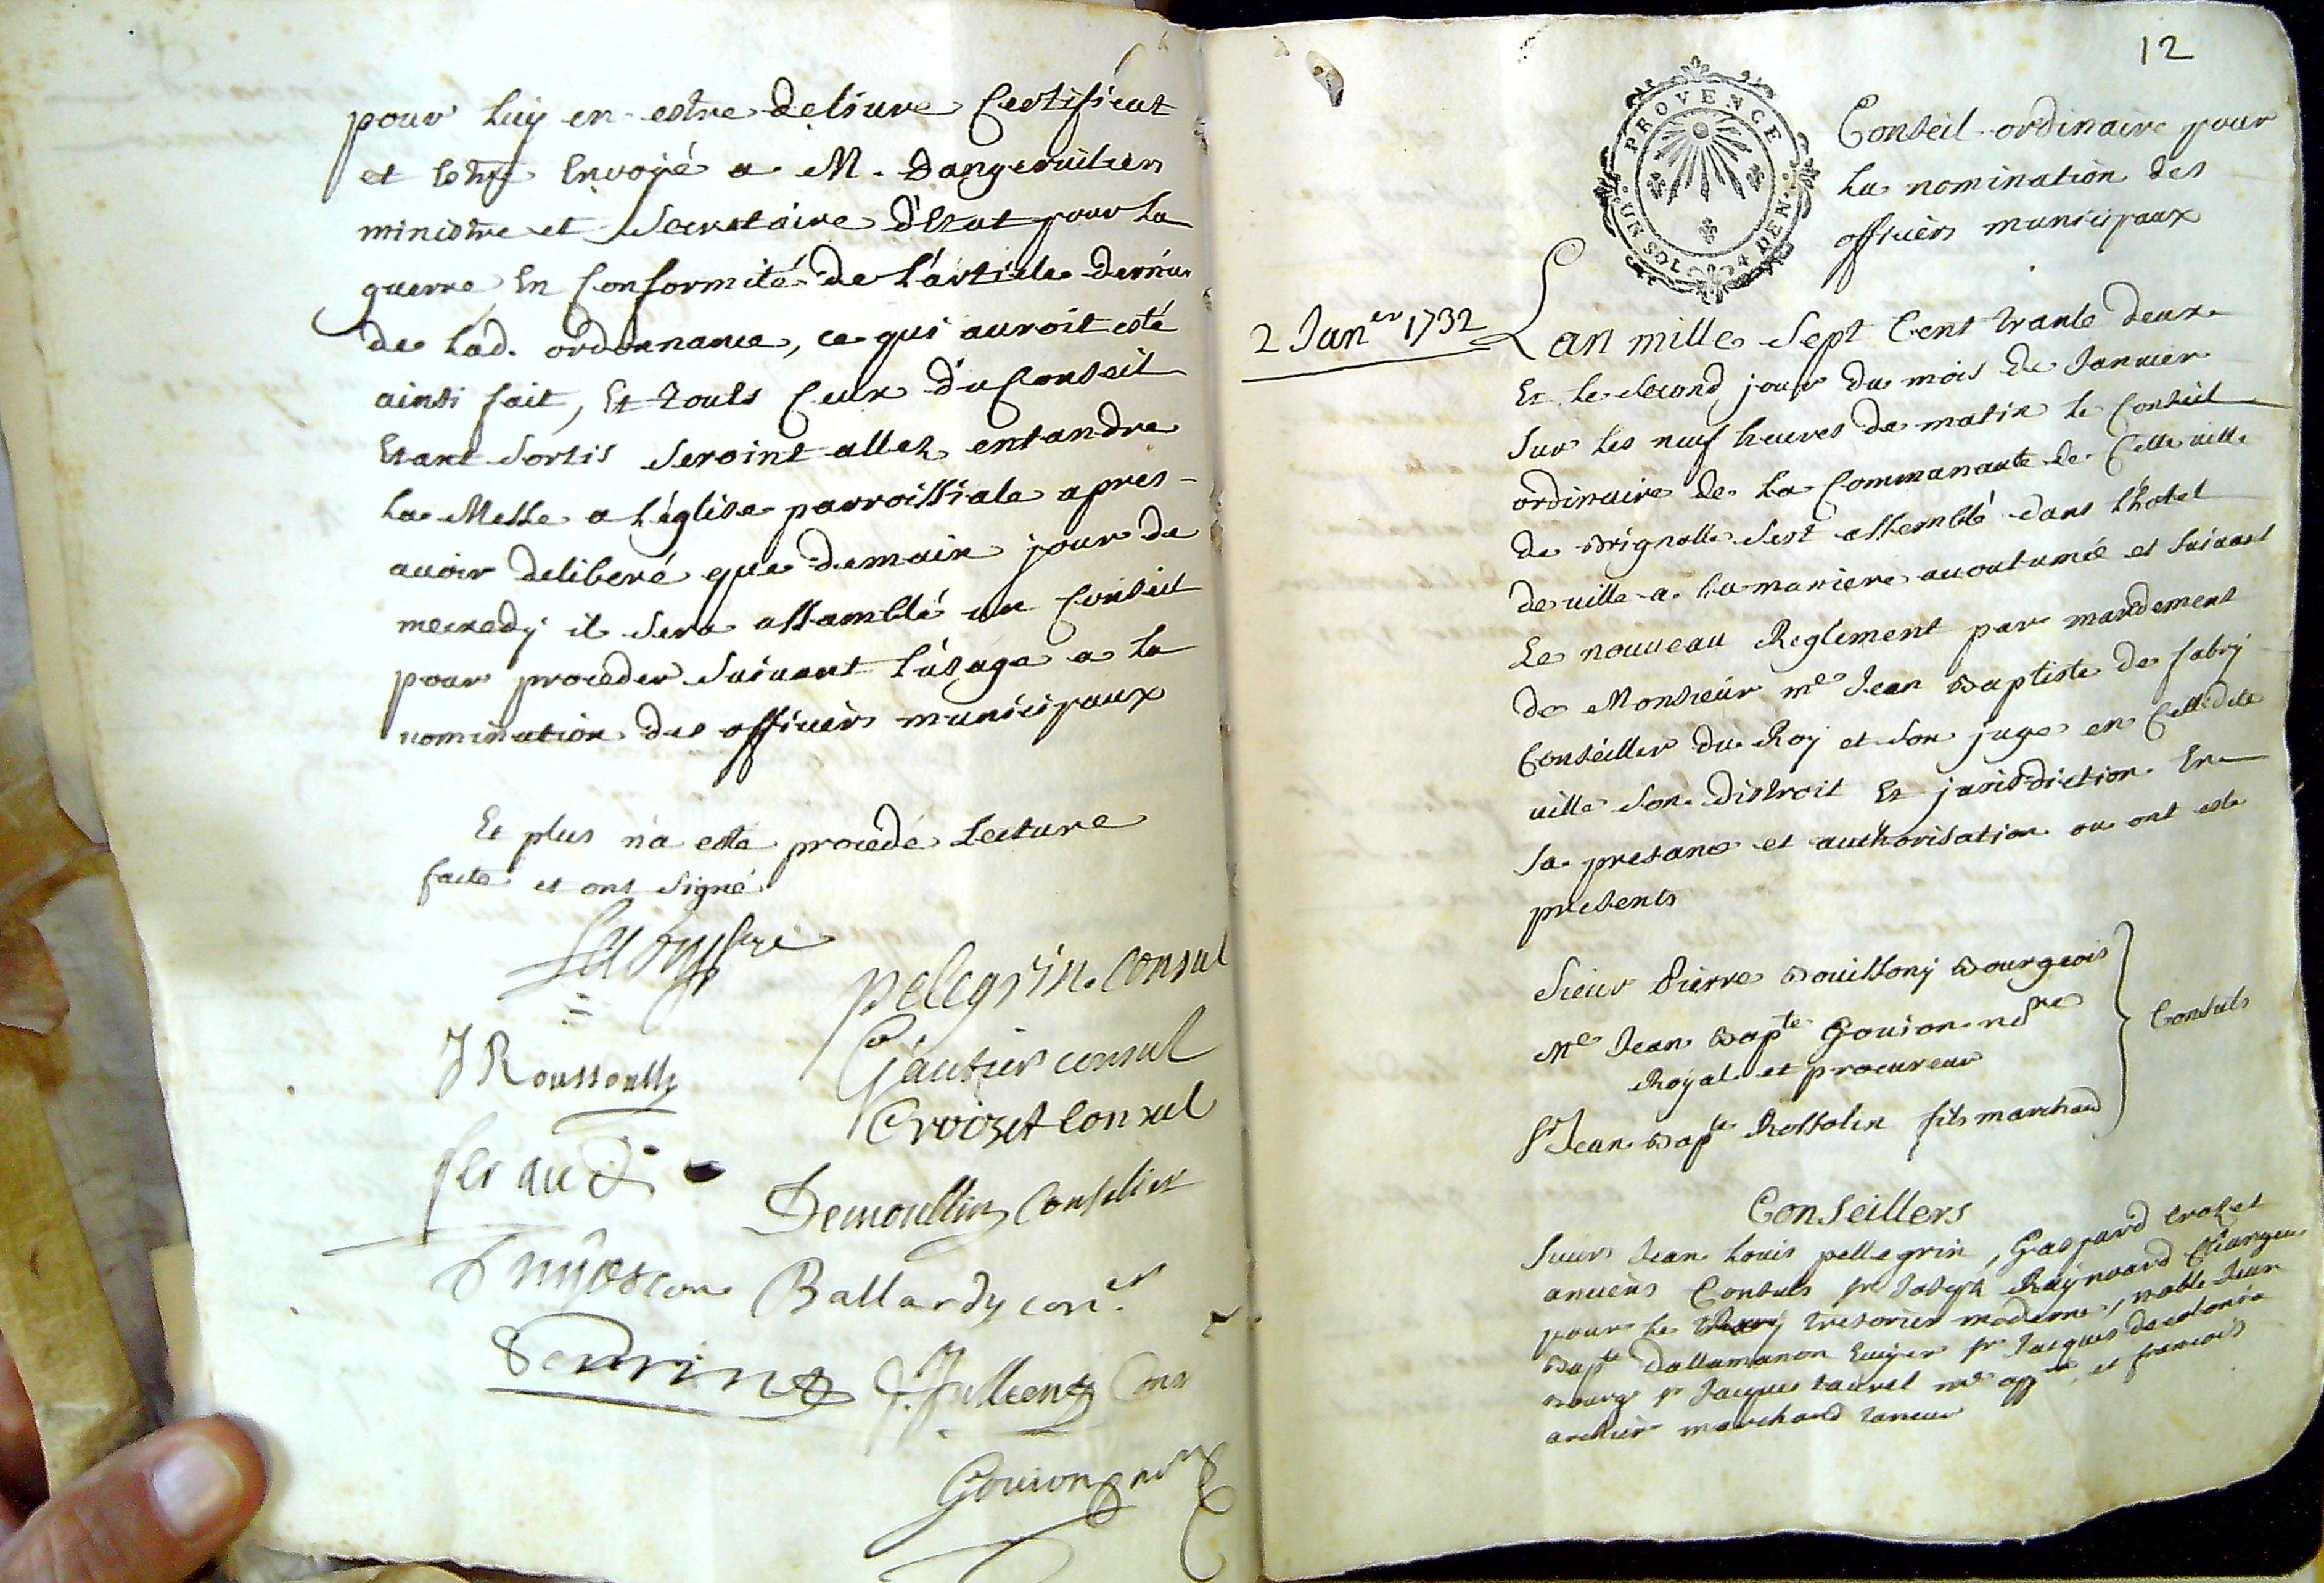 pour luy en estre deliure Certificat
et lettre Envoyé a M. Dangeruiliers
ministre et Secretaire d'Etat pour la
guerre En Conformité de l'article dernier
de lad. ordonnance, ce qui auroit esté
ainsi fait, Et touts Ceux du Conseil
Etant Sortis Seroint allez entandre
la Messe a l'églize parroissiale apres
auoir deliberé que demain jour de
mecredy il Sera assamblé un Conseil
pour proceder Suiuant l'usage a la
nomination des officiers municipaux
Et plus n'a esté procedé Lecture
faite et ont Signé
pelegrin Consul
J Roussoully
Gautier consul
Croizet Consul
feraud
Demoullin Conselier
Ballardy con.er
J. Jullien Cons
Gouion
12
PROVENCE
UN SOL 4 DEN.
Conseil ordinaire pour
la nomination des
officiers municipaux
2 Jan.er 1732
Lan mille Sept Cent trante deux
Et le Second jour du mois de Januier
Sur les neuf heures de matin le Conseil
ordinaire de la Communauté de Cette uille
de Brignolle S'est assemblé dans l'hotel
de uille a la maniere acoutumée et Suiuant
Le nouueau Reglement par mandement
de Monsieur me Jean Baptiste de fabry
Conseiller du Roy et Son juge en Cettedite
uille Son distroit Et jurisdiction En
Sa presance et authorisation ou ont esté
presents
Sieur Pierre Bouissony Bourgeois
Me Jean Bapte Gouion nore
Royal et procureur
Sr Jean Bapte Rossolin fils marchand
Consuls
Conseillers
Sieurs Jean Louis pellegrin, Gaspard Crozet
anciens Consuls Sr Joseph Raynaard Chargeur
pour le tresorier moderne, noble Jean
Bapte Dallamanon Ecuyer Sr Jacques de colonia
Bourg Sr Jacques Laurel me appre et francois
archier marchand taneur